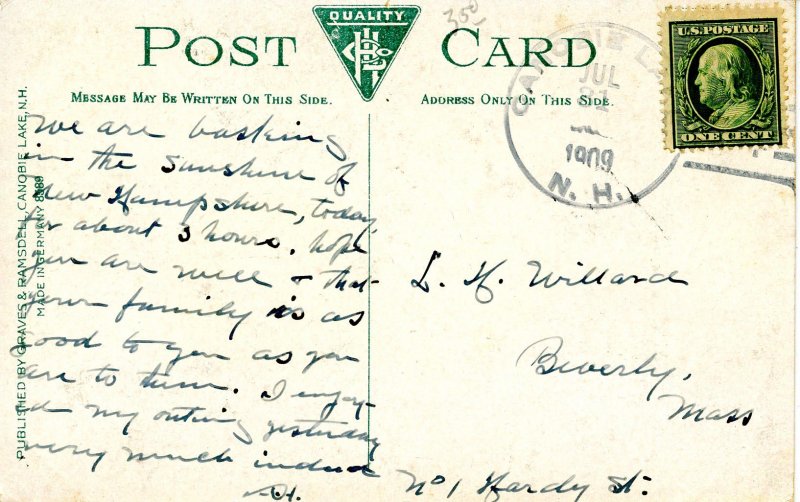 QUALITY
POST CARD
350
MESSAGE MAY BE WRITTEN ON THIS SIDE.
ADDRESS ONLY ON THIS SIDE.
PUBLISHED BY GRAVES & RAMSDELL, CANOBIE LAKE, N.H.
MADE IN GERMANY
We are basking
in the sunshine of
New Hampshire, today,
for about 3 hours. hope
you are well & that
your family is as
good to you as you
are to them. I enjoy-
ed my outing yesterday
very much indeed
H.
CANOBIE LA
JUL
31
1909
N. H.
U.S. POSTAGE
ONE CENT
L. H. Willard
Beverly,
Mass
No 1 Hardy St.